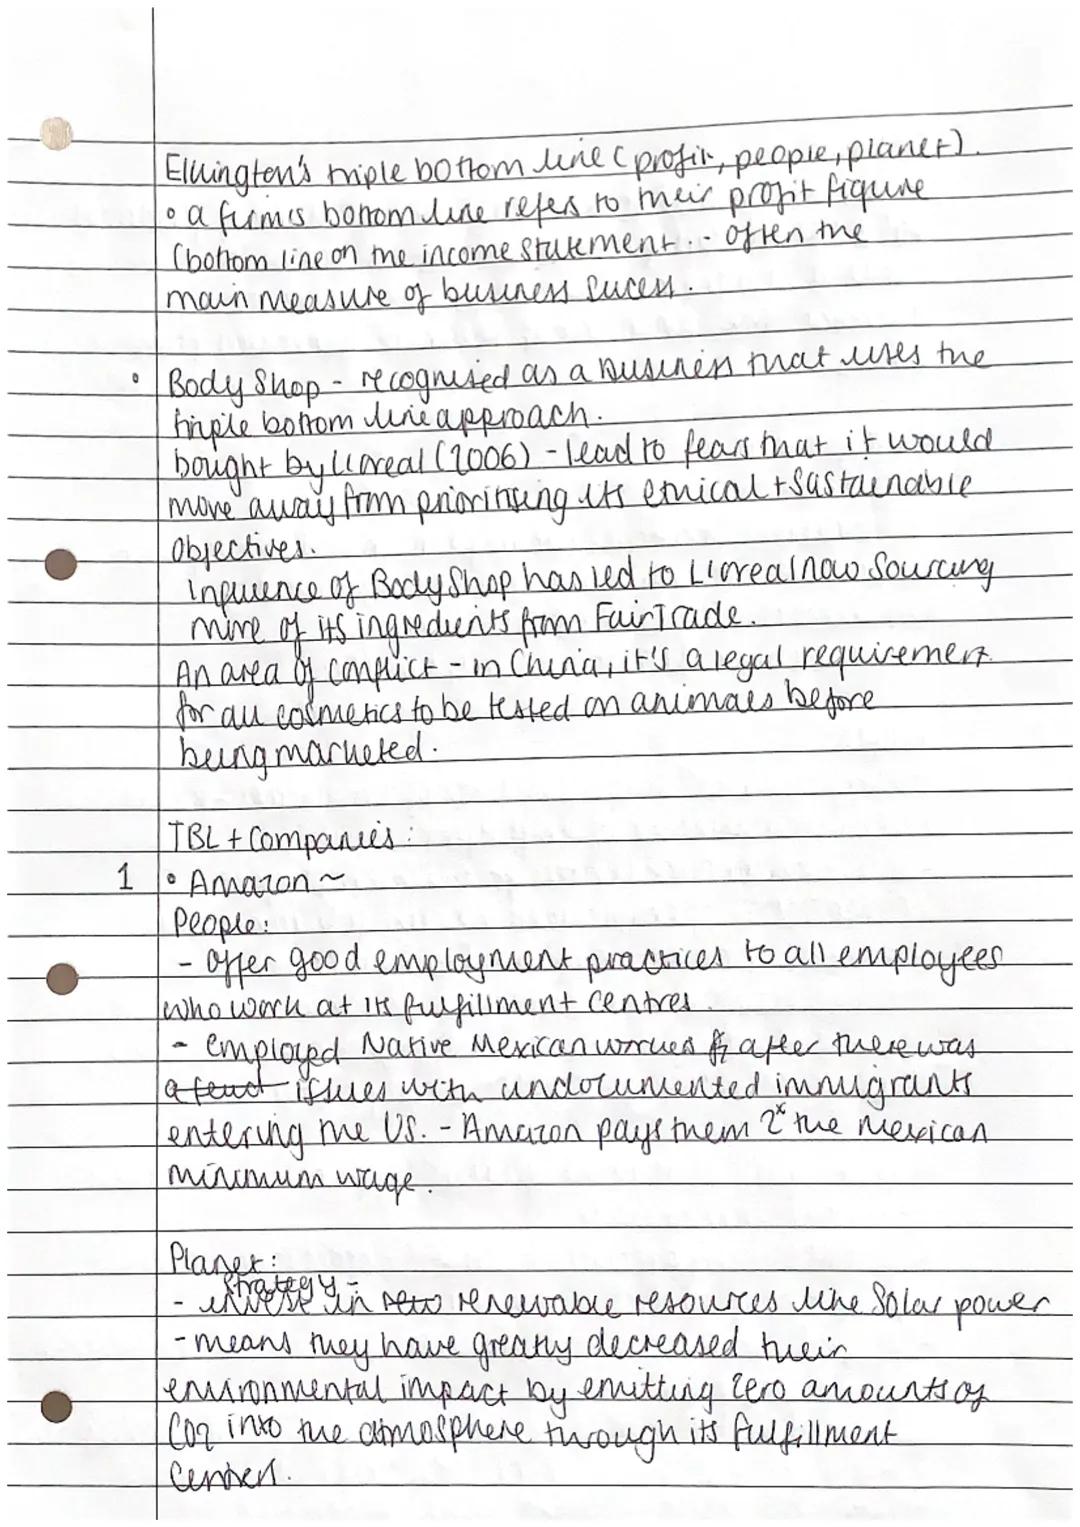 Elkington's triple bottom line (profit, people, planet).
• a firm's bottom line refers to their profit figure
(bottom line on the income statement. - often the
main measure of business sucess.
• Body Shop - recognised as a business that uses the
triple bottom line approach.
bought by L'oreal (2006) - lead to fears that it would
move away from prioritising its ethical + sustainable
objectives.
Influence of Body Shop has led to L'oreal now sourcing
more of its ingredients from FairTrade.
An area of conflict - in China, it's a legal requirement
for all cosmetics to be tested on animals before
being marketed.
TBL + Companies:
1 • Amazon ~
People:
- offer good employment practices to all employees
who work at its fulfillment centres
- employed Native Mexican workers after there was
issues with undocumented immigrants
entering the US. - Amazon pays them 2x the Mexican
minimum wage.
Planet:
strategy -
- invest in renewable resources like Solar power
- means they have greatly decreased their
environmental impact by emitting zero amounts of
CO2 into the atmosphere through its fulfillment
centers.